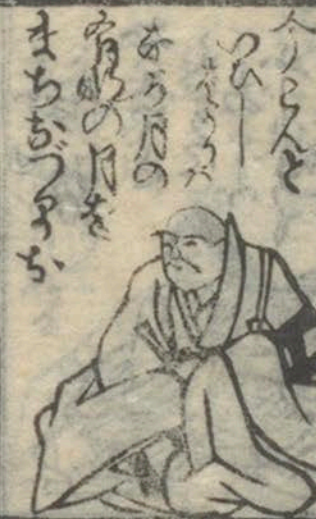 今こんと
いひし
ばかりに
なが月の
有明の月を
まち出づるかな